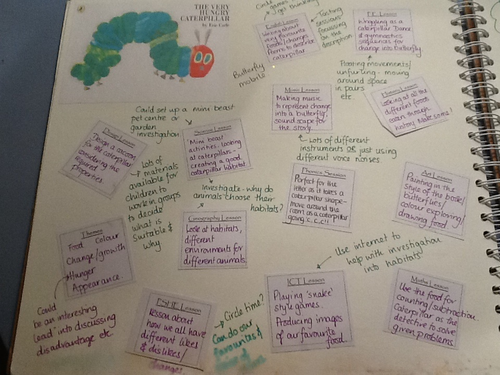 THE VERY
HUNGRY
CATERPILLAR
by Eric Carle
English Lesson
Writing about
very favourite
foods
Adding
Poems to describe
caterpillar
Tasting
sessions?
focussing on
the description
P.E. Lesson
Wrapping as a
caterpillar. Dance
& gymnastics
sequences for
change into butterfly.
Butterfly
mobiles
Floating movements/
unfurling - moving
around space
in pairs
etc
Music Lesson
Making music
to represent change
into a butterfly/
sound scape for
the story.
History Lesson
Looking at all the
different foods
eaten through
history. Make some!
Lots of different
instruments OR just using
different voice noises.
Could set up a mini beast
pet centre or
garden
investigation
Design Lesson
Design a cocoon
for the caterpillar
considering the
required
properties.
Science Lesson
Mini beast
activities. Looking
at caterpillar -
creating a good
caterpillar habitat.
Lots of
materials
available for
children to
work in groups
to decide
what is
suitable &
why
Investigate - why do
animals choose their
habitats?
Phonics Session
Perfect for this
letter as it takes a
caterpillar shape -
move around the
room as a caterpillar
going c, c, c!!
Art Lesson
Painting in the
style of the book/
butterflies/
colour exploring/
drawing food
Themes
Food Colour
Change/growth
Hunger
Appearance
Geography Lesson
Look at habitats,
different
environments for
different animals.
Use internet to
help with investigation
into habitats?
Could
be an interesting
lead into discussing
disadvantage etc.
PSHE Lesson
lesson about
how we all have
different likes &
dislikes/
changes
Circle time?
Can do our
favourites &
ICT Lesson
Playing 'snake'
style games
Producing images
of our favourite
food.
Maths Lesson
Use the food for
counting/subtraction
Caterpillar as the
detective to solve
given problems.